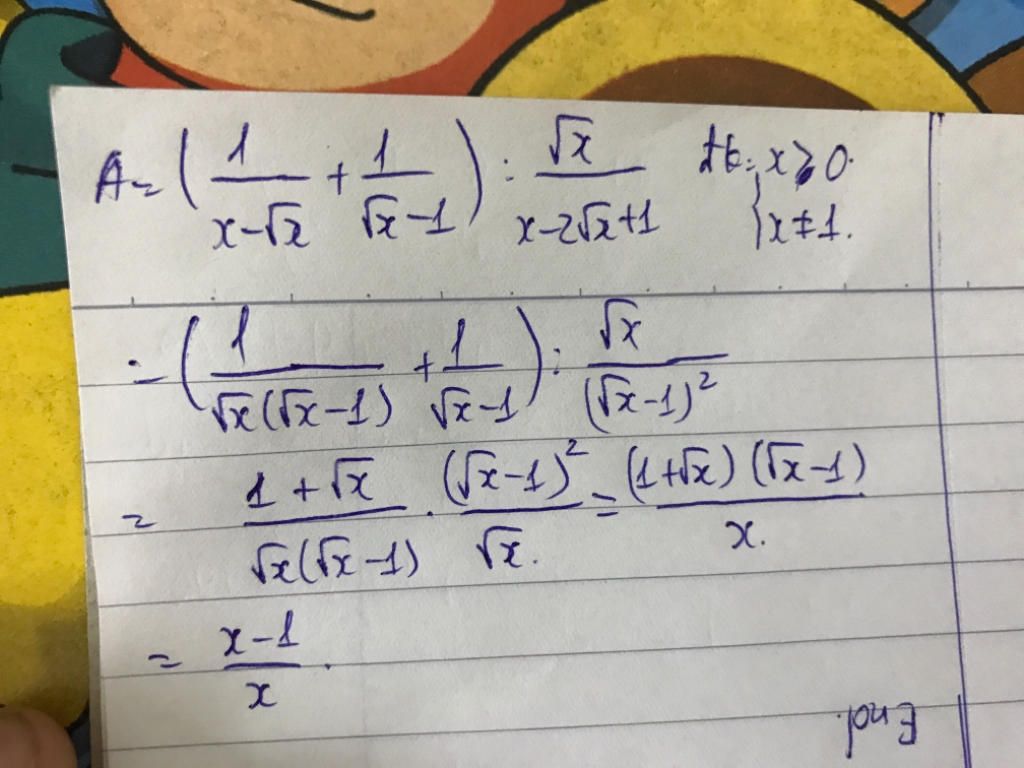 A = ( 1/(x-√x) + 1/(√x-1) ) : √x/(x-2√x+1) đk: { x ⩾ 0. x ≠ 1.
= ( 1/(√x(√x-1)) + 1/(√x-1) ) : √x/(√x-1)²
= (1+√x)/(√x(√x-1)) . (√x-1)²/√x. = (1+√x)(√x-1)/x.
= (x-1)/x .
End.